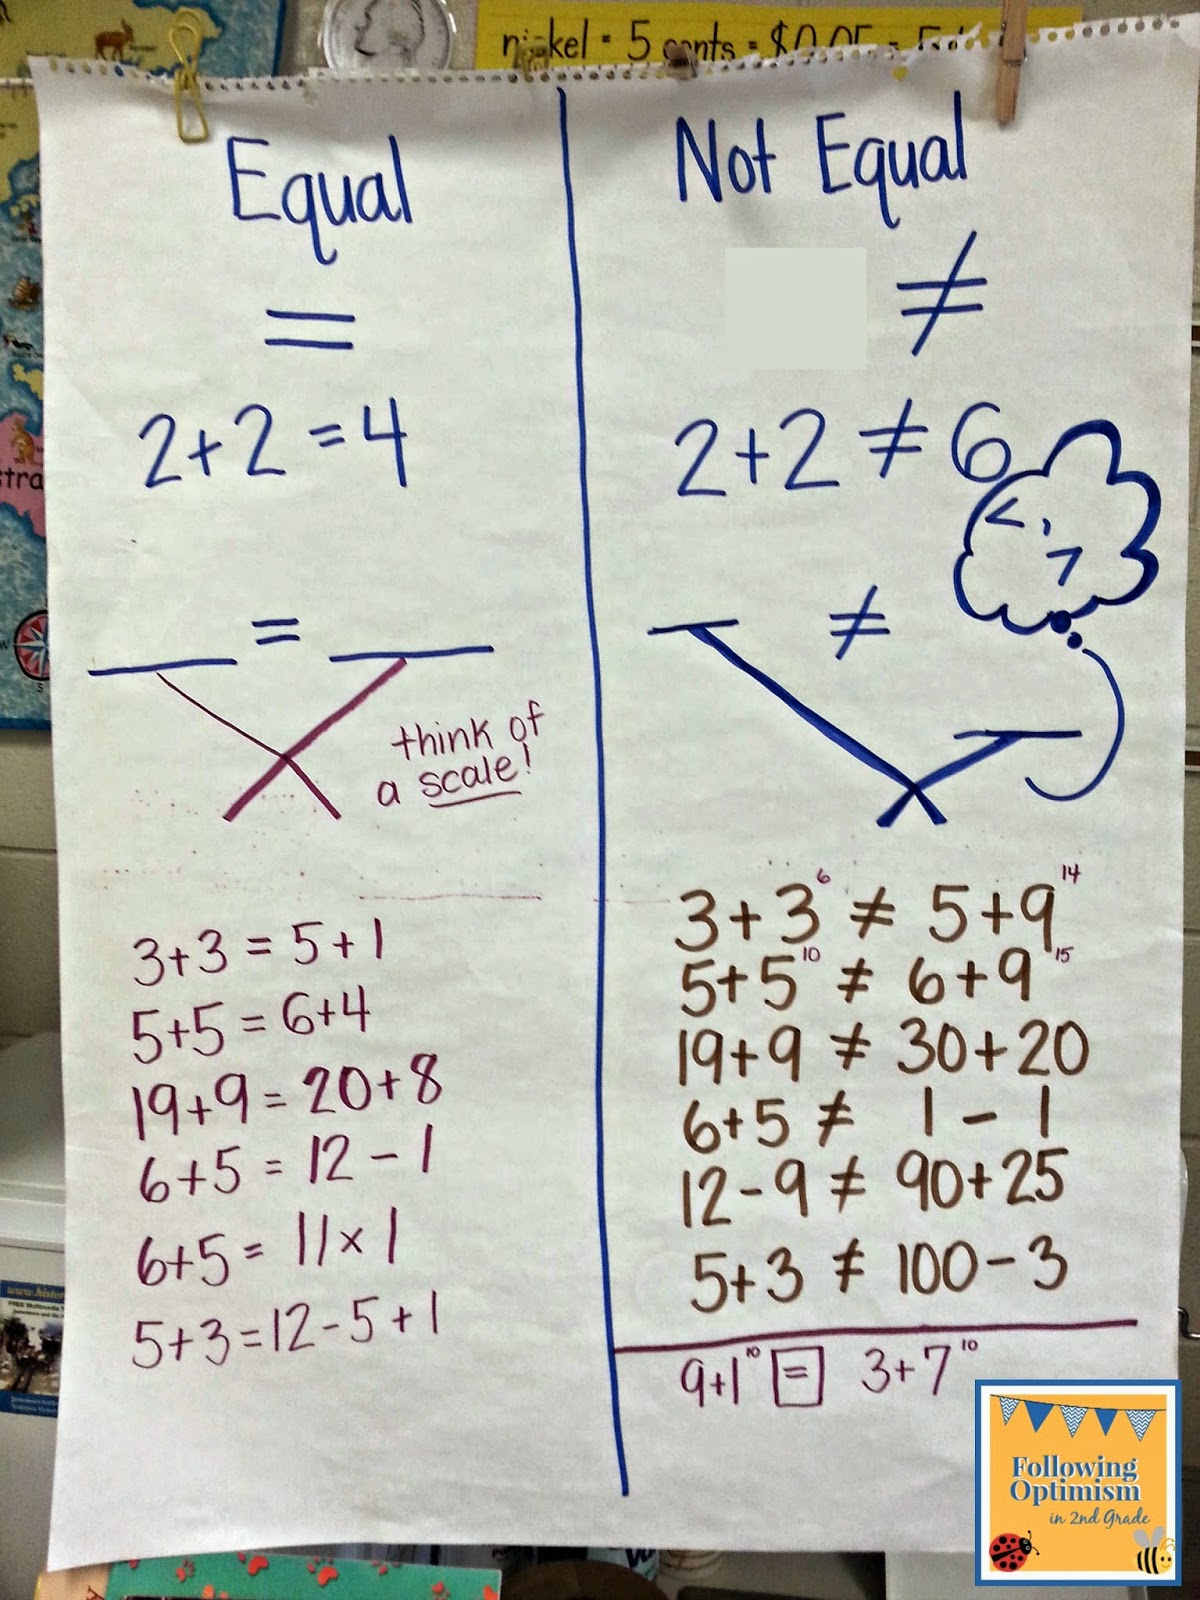 nickel = 5 cents = $0.05 = 5¢
Equal
=
2+2=4
=
think of
a scale!
3+3 = 5+1
5+5 = 6+4
19+9 = 20+8
6+5 = 12-1
6+5 = 11x1
5+3=12-5+1
Not Equal
≠
2+2≠6
<,
>
≠
3+3 6 ≠ 5+9 14
5+5 10 ≠ 6+9 15
19+9 ≠ 30+20
6+5 ≠ 1-1
12-9 ≠ 90+25
5+3 ≠ 100-3
9+1 10 = 3+7 10
stra
Following
Optimism
in 2nd Grade